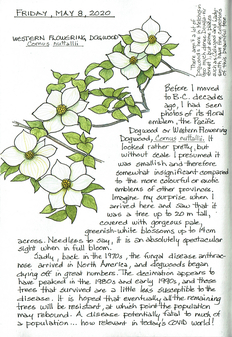 FRIDAY, MAY 8, 2020
WESTERN FLOWERING DOGWOOD
Cornus nuttallii
Before I moved
to B.C. decades
ago, I had seen
photos of its floral
emblem, the Pacific
Dogwood or Western Flowering
Dogwood, Cornus nuttallii. It
looked rather pretty, but
without scale I presumed it
was smallish and therefore
somewhat insignificant compared
to the more colourful or exotic
emblems of other provinces.
Imagine my surprise when I
arrived here and saw that it
was a tree up to 20 m tall,
covered with gorgeous pale
greenish-white blossoms up to 14cm
across. Needless to say, it is an absolutely spectacular
sight when in full bloom.
Sadly, back in the 1970s, the fungal disease anthrac-
nose arrived in North America, and dogwoods began
dying off in great numbers. The decimation appears to
have peaked in the 1980s and early 1990s, and those
trees that survived are a little less susceptible to the
disease. It is hoped that eventually all the remaining
trees will be resistant, at which point the population
may rebound. A disease potentially fatal to much of
a population... how relevant in today's COVID world!